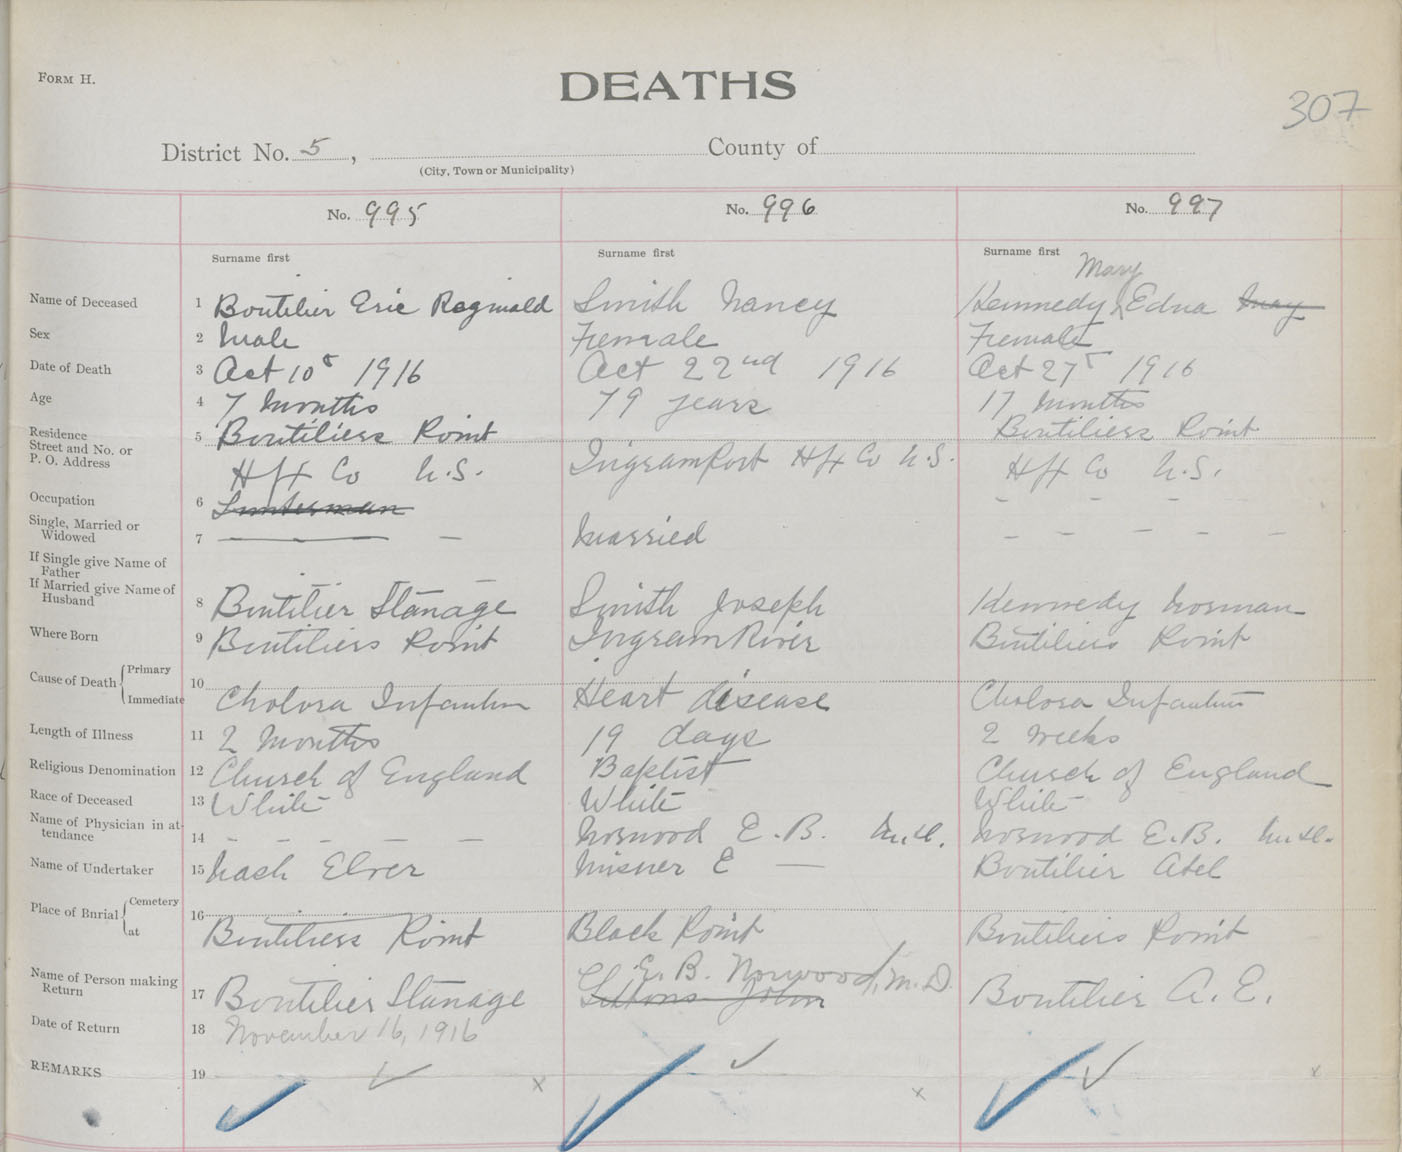 FORM H.
DEATHS
307
District No. 5 , County of
(City, Town or Municipality)
No. 995 No. 996 No. 997
Surname first Surname first Surname first
Mary
Name of Deceased 1 Boutilier Eric Reginald Smith Nancy Kennedy Edna May
Sex 2 Male Female Female
Date of Death 3 Oct 10th 1916 Oct 22nd 1916 Oct 27th 1916
Age 4 7 months 79 years 17 months
Residence 5 Boutiliers Point Boutiliers Point
Street and No. or
P. O. Address Hfx Co N.S. Ingramport Hfx Co N.S. Hfx Co N.S.
Occupation 6 Lumberman - - - -
Single, Married or
Widowed 7 — - Married - - - - -
If Single give Name of
Father
If Married give Name of
Husband 8 Boutilier Stanage Smith Joseph Kennedy Norman
Where Born 9 Boutiliers Point Ingram River Boutiliers Point
Cause of Death { Primary
Immediate 10 Cholora Infantum Heart disease Cholora Infantum
Length of Illness 11 2 months 19 days 2 weeks
Religious Denomination 12 Church of England Baptist Church of England
Race of Deceased 13 White White White
Name of Physician in at-
tendance 14 - - - - - Norwood E.B. M.d. Norwood E.B. M.d.
Name of Undertaker 15 Nash Elver Misner E — Boutilier Abel
Place of Burial { Cemetery
at 16 Boutiliers Point Black Point Boutiliers Point
E. B. Norwood, M.D.
Name of Person making
Return 17 Boutilier Stanage John Boutilier A. E.
Date of Return 18 November 16, 1916
REMARKS 19 ✓ x ✓ x ✓ x